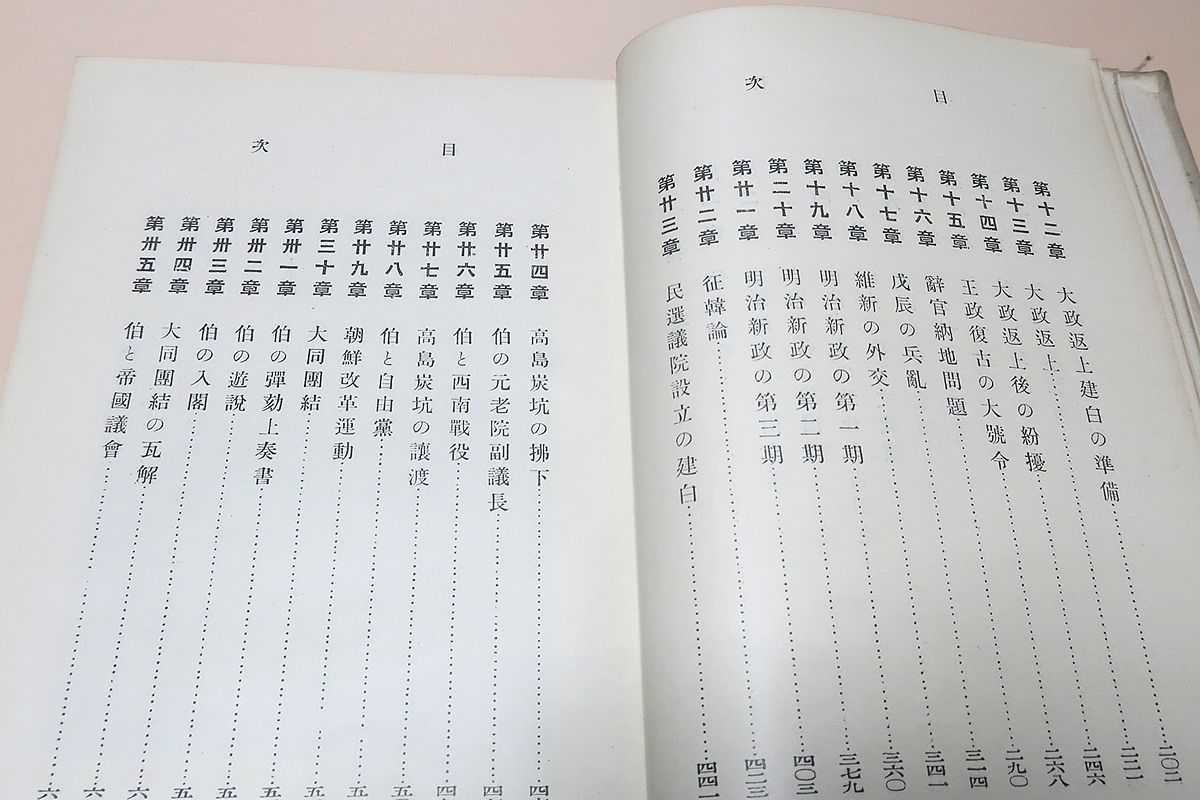 目次
第十二章 大政返上建白の準備 二〇二
第十三章 大政返上 二二一
第十四章 大政返上後の紛擾 二四六
第十五章 王政復古の大號令 二六八
第十六章 辭官納地問題 二九〇
第十七章 戊辰の兵亂 三一四
第十八章 維新の外交 三四一
第十九章 明治新政の第一期 三六〇
第二十章 明治新政の第二期 三七九
第廿一章 明治新政の第三期 四〇三
第廿二章 征韓論 四二三
第廿三章 民選議院設立の建白 四四一
目次
第廿四章 高島炭坑の拂下
第廿五章 伯の元老院副議長
第廿六章 伯と西南戰役
第廿七章 高島炭坑の讓渡
第廿八章 伯と自由黨
第廿九章 朝鮮改革運動
第三十章 大同團結
第卅一章 伯の彈劾上奏書
第卅二章 伯の遊説
第卅三章 伯の入閣
第卅四章 大同團結の瓦解
第卅五章 伯と帝國議會